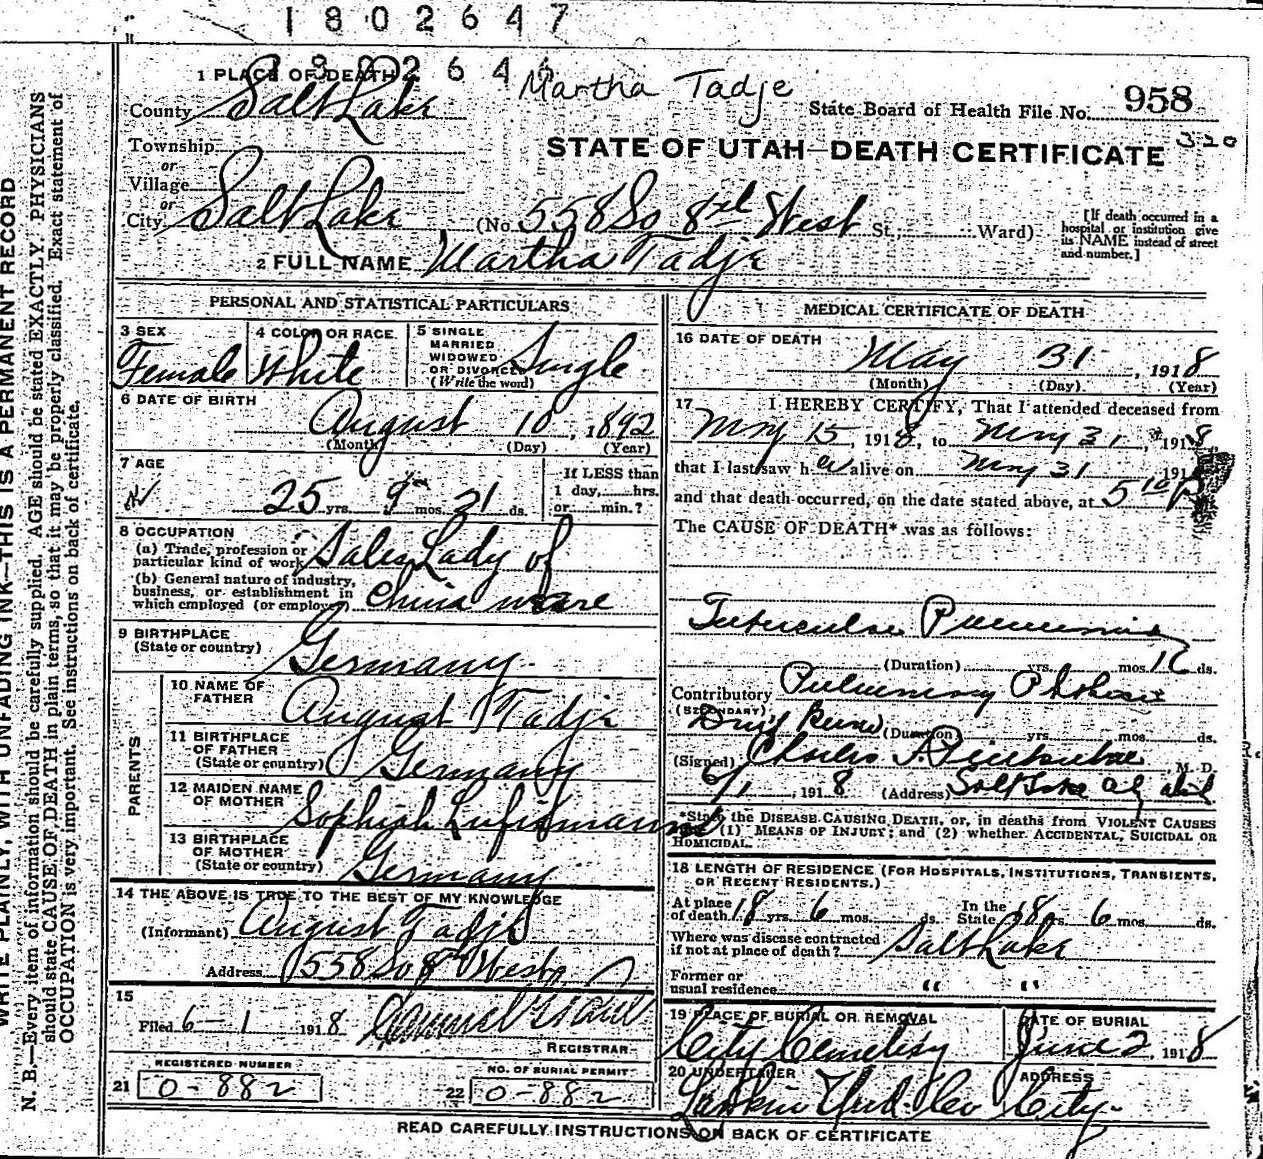 1802647
1 PLACE OF DEATH 2 6 4
Martha Tadje
County Salt Lake
State Board of Health File No. 958
320
Township
or
Village
or
City Salt Lake
STATE OF UTAH—DEATH CERTIFICATE
(No. 558 So 8th West St.; Ward)
[If death occurred in a
hospital or institution give
its NAME instead of street
and number.]
2 FULL NAME Martha Tadje
PERSONAL AND STATISTICAL PARTICULARS
3 SEX Female
4 COLOR OR RACE White
5 SINGLE
MARRIED
WIDOWED
OR DIVORCED
(Write the word) Single
6 DATE OF BIRTH
August 10, 1892
(Month) (Day) (Year)
7 AGE
25 yrs. 9 mos. 21 ds.
If LESS than
1 day, hrs.
or min.?
8 OCCUPATION
(a) Trade, profession or
particular kind of work Sales Lady of
(b) General nature of industry,
business, or establishment in
which employed (or employer) China ware
9 BIRTHPLACE
(State or country) Germany
PARENTS
10 NAME OF
FATHER August Tadje
11 BIRTHPLACE
OF FATHER
(State or country) Germany
12 MAIDEN NAME
OF MOTHER Sophiah
13 BIRTHPLACE
OF MOTHER
(State or country) Germany
14 THE ABOVE IS TRUE TO THE BEST OF MY KNOWLEDGE
(Informant) August Tadje
Address 558 So 8th West
15
Filed 6-1 1918
REGISTRAR
REGISTERED NUMBER
21 0-882
NO. OF BURIAL PERMIT
22 0-882
MEDICAL CERTIFICATE OF DEATH
16 DATE OF DEATH
May 31, 1918
(Month) (Day) (Year)
17 I HEREBY CERTIFY, That I attended deceased from
May 15, 1918, to May 31, 1918
that I last saw her alive on May 31 191
and that death occurred, on the date stated above, at 5 10 P
The CAUSE OF DEATH* was as follows:
Tubercular Pneumonia
(Duration) yrs. mos. ds.
Contributory Pulmonary Phthisis
(SECONDARY)
(Duration) yrs. mos. ds.
(Signed) Charles M. D.
6/1, 1918 (Address) Salt Lake City Utah
*State the DISEASE CAUSING DEATH, or, in deaths from VIOLENT CAUSES
(1) MEANS OF INJURY; and (2) whether ACCIDENTAL, SUICIDAL OR
HOMICIDAL.
18 LENGTH OF RESIDENCE (FOR HOSPITALS, INSTITUTIONS, TRANSIENTS,
OR RECENT RESIDENTS.)
At place
of death 18 yrs. 6 mos. ds.
In the
State 18 yrs. 6 mos. ds.
Where was disease contracted
if not at place of death? Salt Lake
Former or
usual residence " "
19 PLACE OF BURIAL OR REMOVAL
City Cemetery
DATE OF BURIAL
June 2, 1918
20 UNDERTAKER
ADDRESS
City
READ CAREFULLY INSTRUCTIONS ON BACK OF CERTIFICATE
WRITE PLAINLY, WITH UNFADING INK—THIS IS A PERMANENT RECORD
N. B.—Every item of information should be carefully supplied. AGE should be stated EXACTLY. PHYSICIANS
should state CAUSE OF DEATH in plain terms, so that it may be properly classified. Exact statement of
OCCUPATION is very important. See instructions on back of certificate.